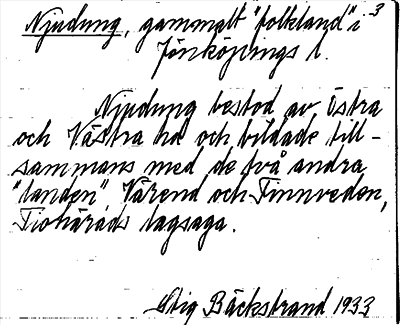 Njudung, gammalt "folkland" i 3
Jönköpings l.
Njudung bestod av Östra
och Västra hd och bildade till-
sammans med de två andra
"landen", Värend och Finnveden,
Tiohärads lagsaga.
Stig Bäckstrand 1933